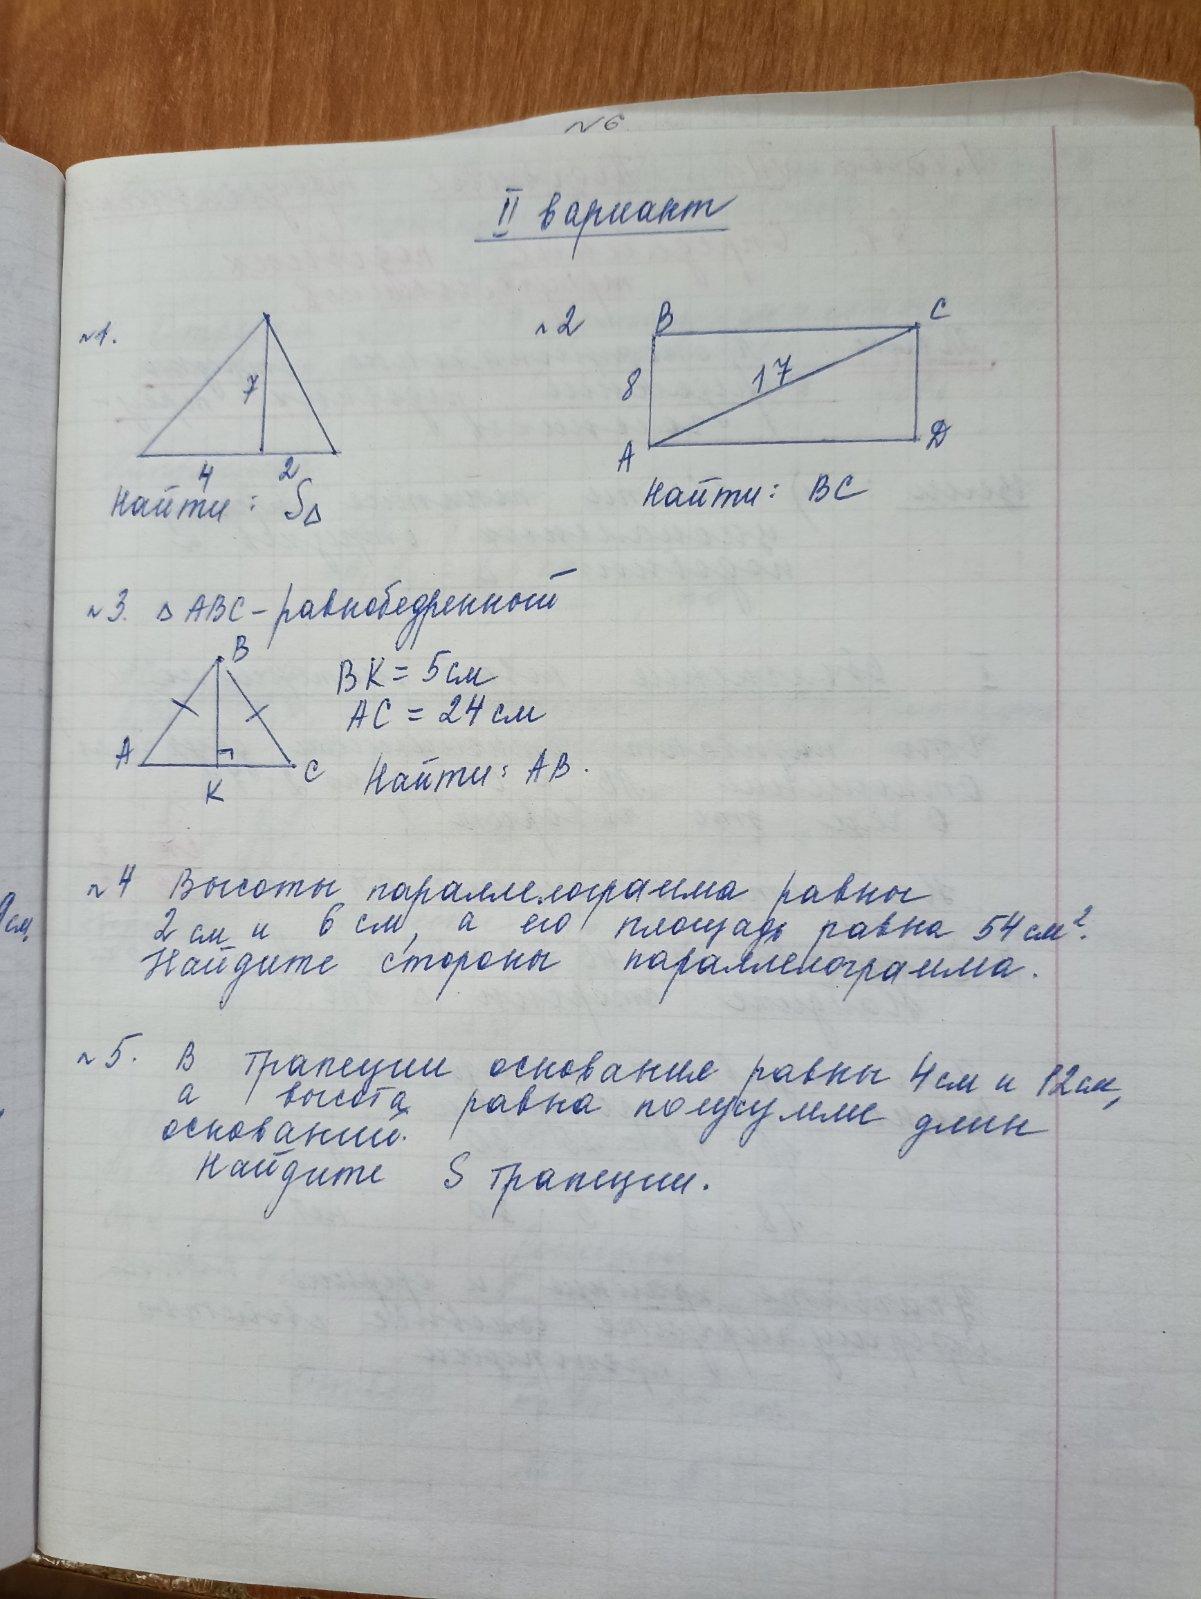 №6
II вариант
№1.
7
4 2
Найти: S△
№2
B C
8 17
A D
Найти: BC
№3. △ ABC - равнобедренный
B
A C
K
BK = 5 см
AC = 24 см
Найти: AB.
№4 Высоты параллелограмма равны
2 см и 6 см, а его площадь равна 54 см².
Найдите стороны параллелограмма.
№5. В трапеции основания равны 4 см и 12 см,
а высота равна полусумме длин
оснований.
Найдите S трапеции.
см,